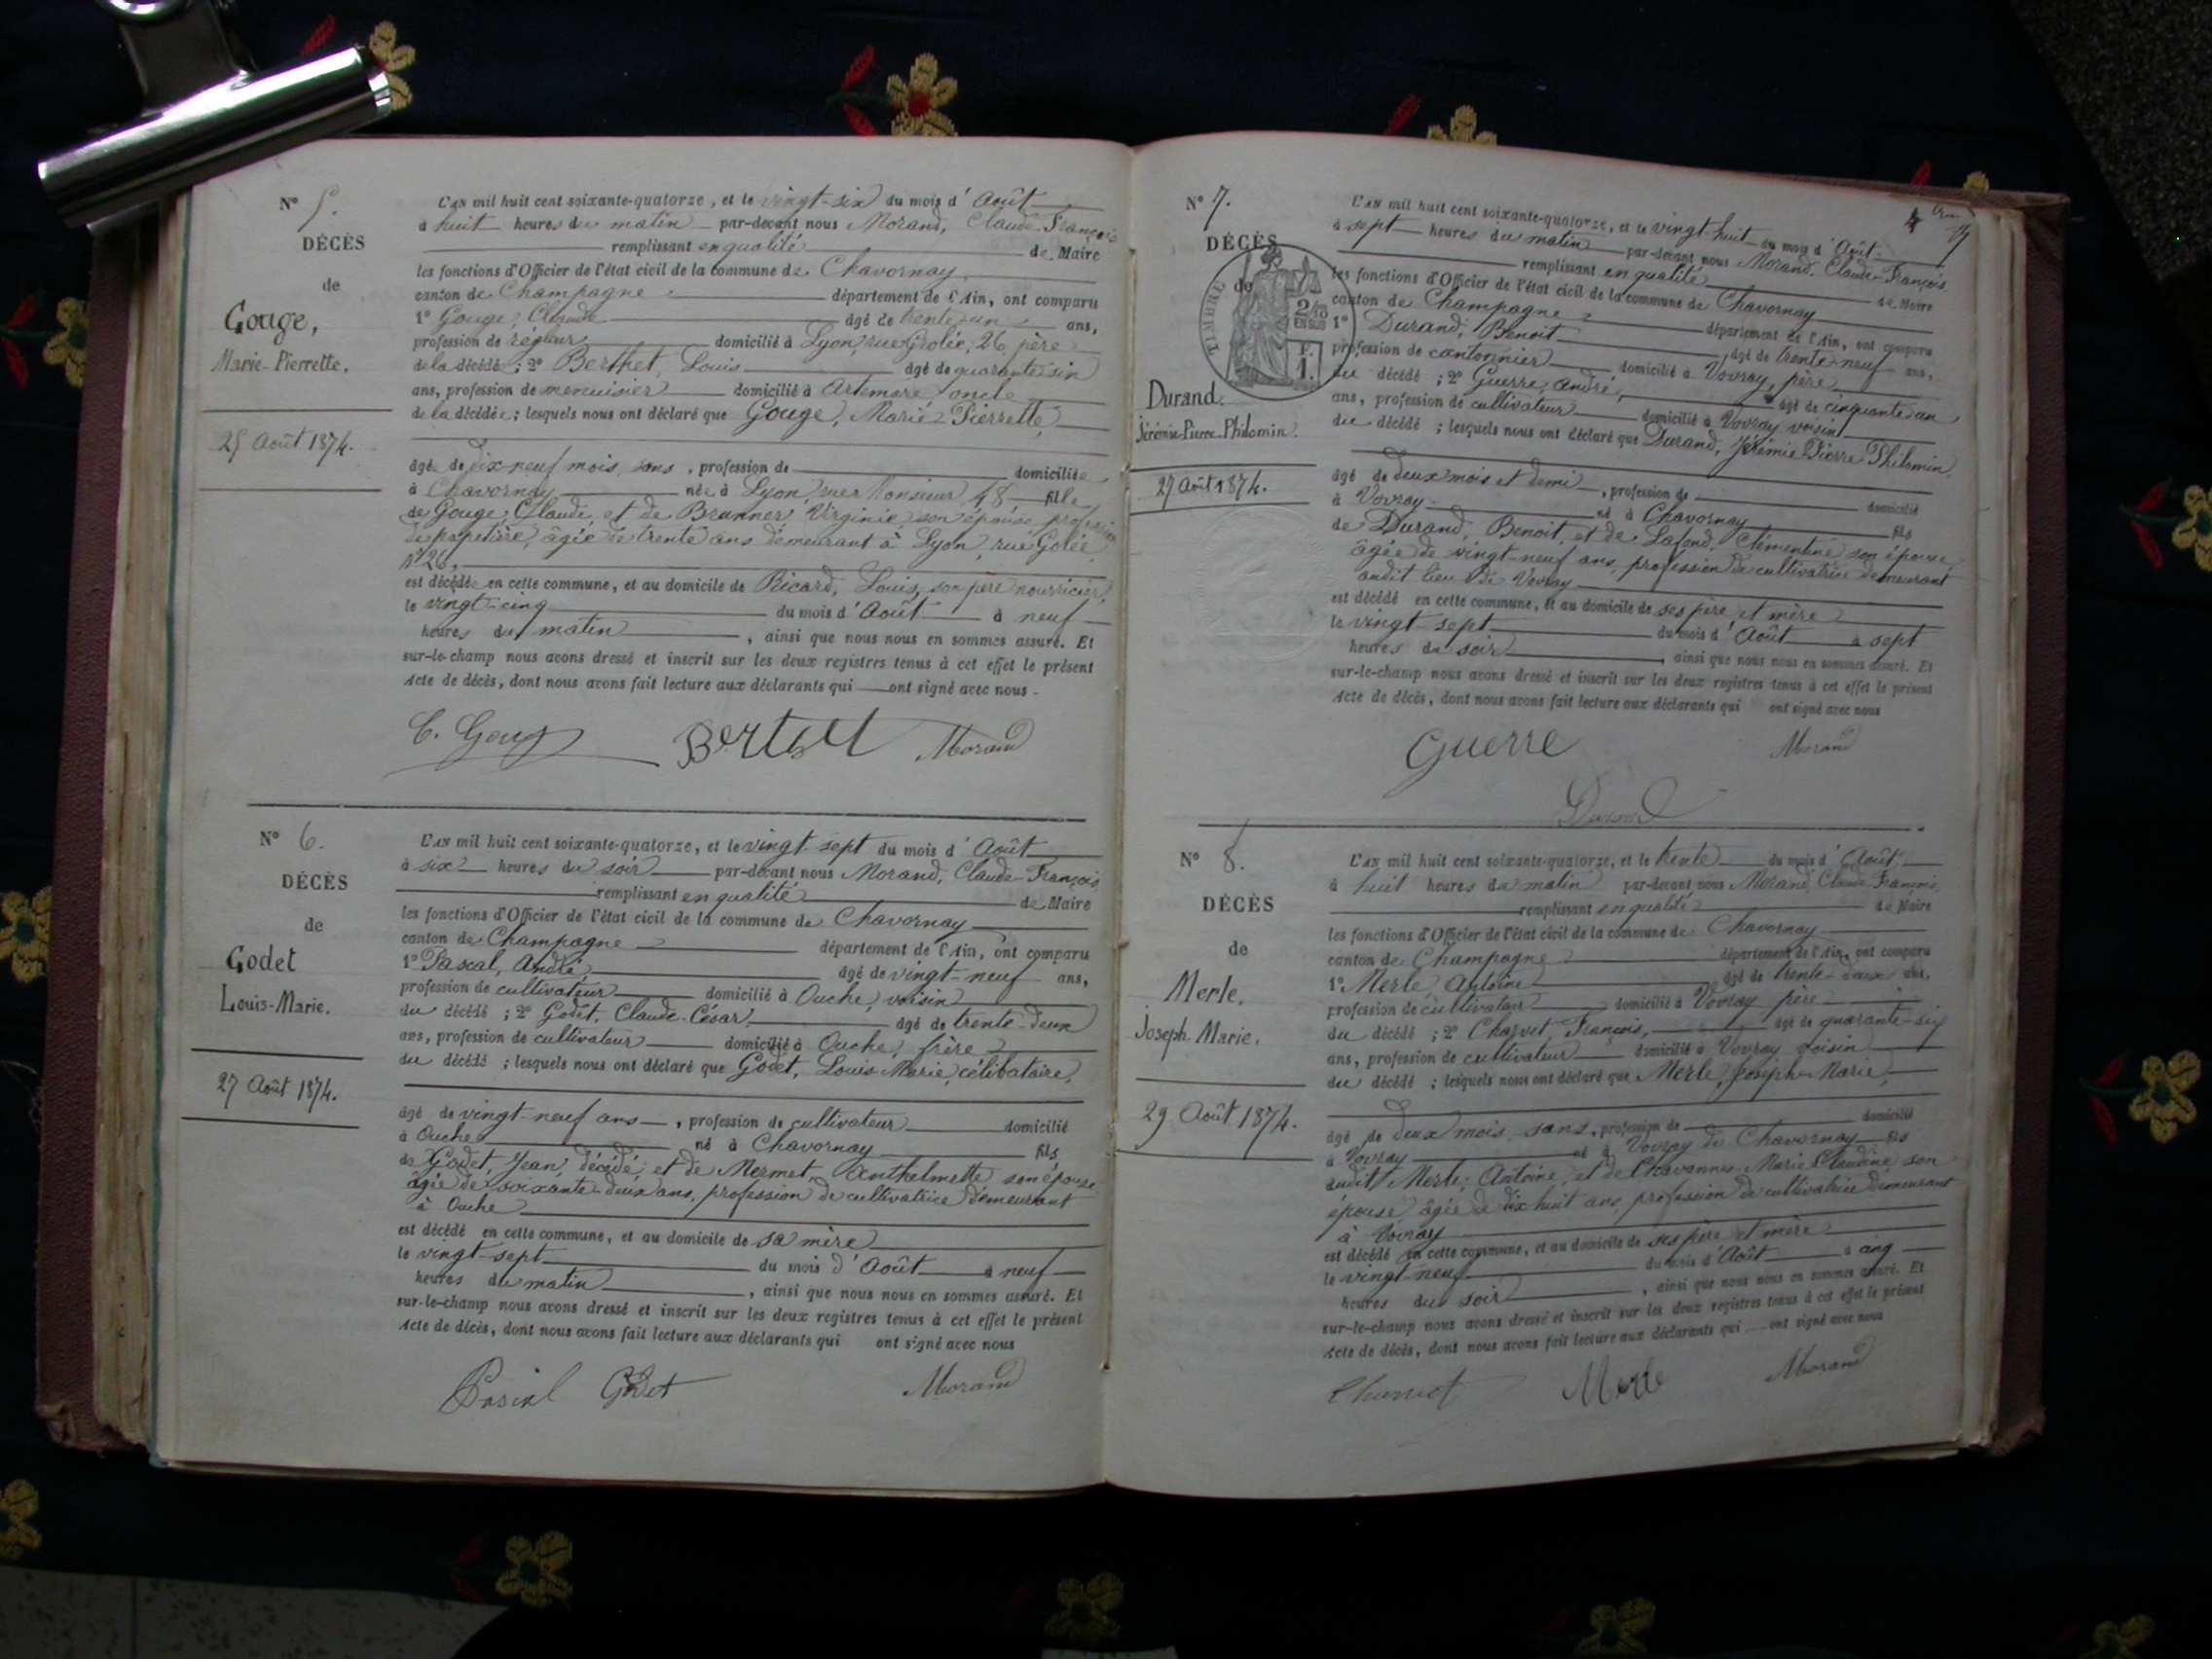 N° 5.
DÉCÈS
de
Gouge,
Marie-Pierrette.
25 Août 1874.
L'AN mil huit cent soixante-quatorze, et le vingt-six du mois d'Août
à huit heures du matin par-devant nous Morand, Claude-François
remplissant en qualité de Maire
les fonctions d'Officier de l'état civil de la commune de Chavornay
canton de Champagne département de l'Ain, ont comparu
1° Gouge, Claude âgé de trente-un ans,
profession de régleur domicilié à Lyon, rue Grolée, 26, père
de la décédé ; 2° Berthet, Louis âgé de quarante-six
ans, profession de menuisier domicilié à Artemare oncle
de la décédée ; lesquels nous ont déclaré que Gouge, Marie-Pierrette,
âgé de dix-neuf mois, sans, profession de domiciliée
à Chavornay née à Lyon, rue Monsieur, 48 fille
de Gouge, Claude, et de Brunner Virginie, son épouse, profession
de papetière, âgée de trente ans demeurant à Lyon, rue Golée
n° 26,
est décédée en cette commune, et au domicile de Ricard, Louis, son père nourricier,
le vingt-cinq du mois d'Août à neuf
heures du matin, ainsi que nous nous en sommes assuré. Et
sur-le-champ nous avons dressé et inscrit sur les deux registres tenus à cet effet le présent
Acte de décès, dont nous avons fait lecture aux déclarants qui ont signé avec nous -
C. Gouge Bertet Morand
N° 6.
DÉCÈS
de
Godet
Louis-Marie.
27 Août 1874.
L'AN mil huit cent soixante-quatorze, et le vingt-sept du mois d'Août
à six heures du soir par-devant nous Morand, Claude-François
remplissant en qualité de Maire
les fonctions d'Officier de l'état civil de la commune de Chavornay
canton de Champagne département de l'Ain, ont comparu
1° Pascal, André âgé de vingt-neuf ans,
profession de cultivateur domicilié à Ouche, voisin
du décédé ; 2° Godet, Claude-César, âgé de trente-deux
ans, profession de cultivateur domicilié à Ouche, frère
du décédé ; lesquels nous ont déclaré que Godet, Louis-Marie, célibataire,
âgé de vingt-neuf ans, profession de cultivateur domicilié
à Ouche né à Chavornay fils
de Godet, Jean, décédé et de Mermet, Anthelmette son épouse
âgée de soixante-deux ans, profession de cultivatrice demeurant
à Ouche
est décédé en cette commune, et au domicile de sa mère
le vingt-sept du mois d'Août à neuf
heures du matin, ainsi que nous nous en sommes assuré. Et
sur-le-champ nous avons dressé et inscrit sur les deux registres tenus à cet effet le présent
Acte de décès, dont nous avons fait lecture aux déclarants qui ont signé avec nous
Pascal Godet Morand
4
N° 7.
DÉCÈS
de
TIMBRE
2/10
EN SUS
F.
1.
Durand.
Jérémie-Pierre-Philomin.
27 Août 1874.
L'AN mil huit cent soixante-quatorze, et le vingt-huit du mois d'Août
à sept heures du matin par-devant nous Morand, Claude-François,
remplissant en qualité de Maire
les fonctions d'Officier de l'état civil de la commune de Chavornay
canton de Champagne département de l'Ain, ont comparu
1° Durand, Benoit âgé de trente-neuf ans,
profession de cantonnier domicilié à Vovray, père
du décédé ; 2° Guerre, André, âgé de cinquante-un
ans, profession de cultivateur domicilié à Vovray voisin
du décédé ; lesquels nous ont déclaré que Durand, Jérémie Pierre Philomin
âgé de deux mois et demi, profession de domicilié
à Vovray né à Chavornay fils
de Durand, Benoit, et de Lafond, Clémentine son épouse,
âgée de vingt-neuf ans, profession de cultivatrice demeurant
audit lieu de Vovray
est décédé en cette commune, et au domicile de ses père et mère
le vingt-sept du mois d'Août à sept
heures du soir, ainsi que nous nous en sommes assuré. Et
sur-le-champ nous avons dressé et inscrit sur les deux registres tenus à cet effet le présent
Acte de décès, dont nous avons fait lecture aux déclarants qui ont signé avec nous
Guerre Morand
Durand
N° 8.
DÉCÈS
de
Merle,
Joseph Marie.
29 Août 1874.
L'AN mil huit cent soixante-quatorze, et le trente du mois d'Août
à huit heures du matin par-devant nous Morand, Claude François,
remplissant en qualité de Maire
les fonctions d'Officier de l'état civil de la commune de Chavornay
canton de Champagne département de l'Ain, ont comparu
1° Merle, Antoine âgé de trente-deux ans,
profession de cultivateur domicilié à Vovray père
du décédé ; 2° Charvet, François, âgé de quarante-six
ans, profession de cultivateur domicilié à Vovray voisin
du décédé ; lesquels nous ont déclaré que Merle, Joseph-Marie,
âgé de deux mois, sans, profession de domicilié
à Vovray né à Vovray de Chavornay fils
dudit Merle, Antoine, et de Chavannes Marie Claudine son
épouse âgée de dix huit ans, profession de cultivatrice demeurant
à Vovray
est décédé en cette commune, et au domicile de ses père et mère
le vingt-neuf du mois d'Août à cinq
heures du soir, ainsi que nous nous en sommes assuré. Et
sur-le-champ nous avons dressé et inscrit sur les deux registres tenus à cet effet le présent
Acte de décès, dont nous avons fait lecture aux déclarants qui ont signé avec nous
Merle Morand